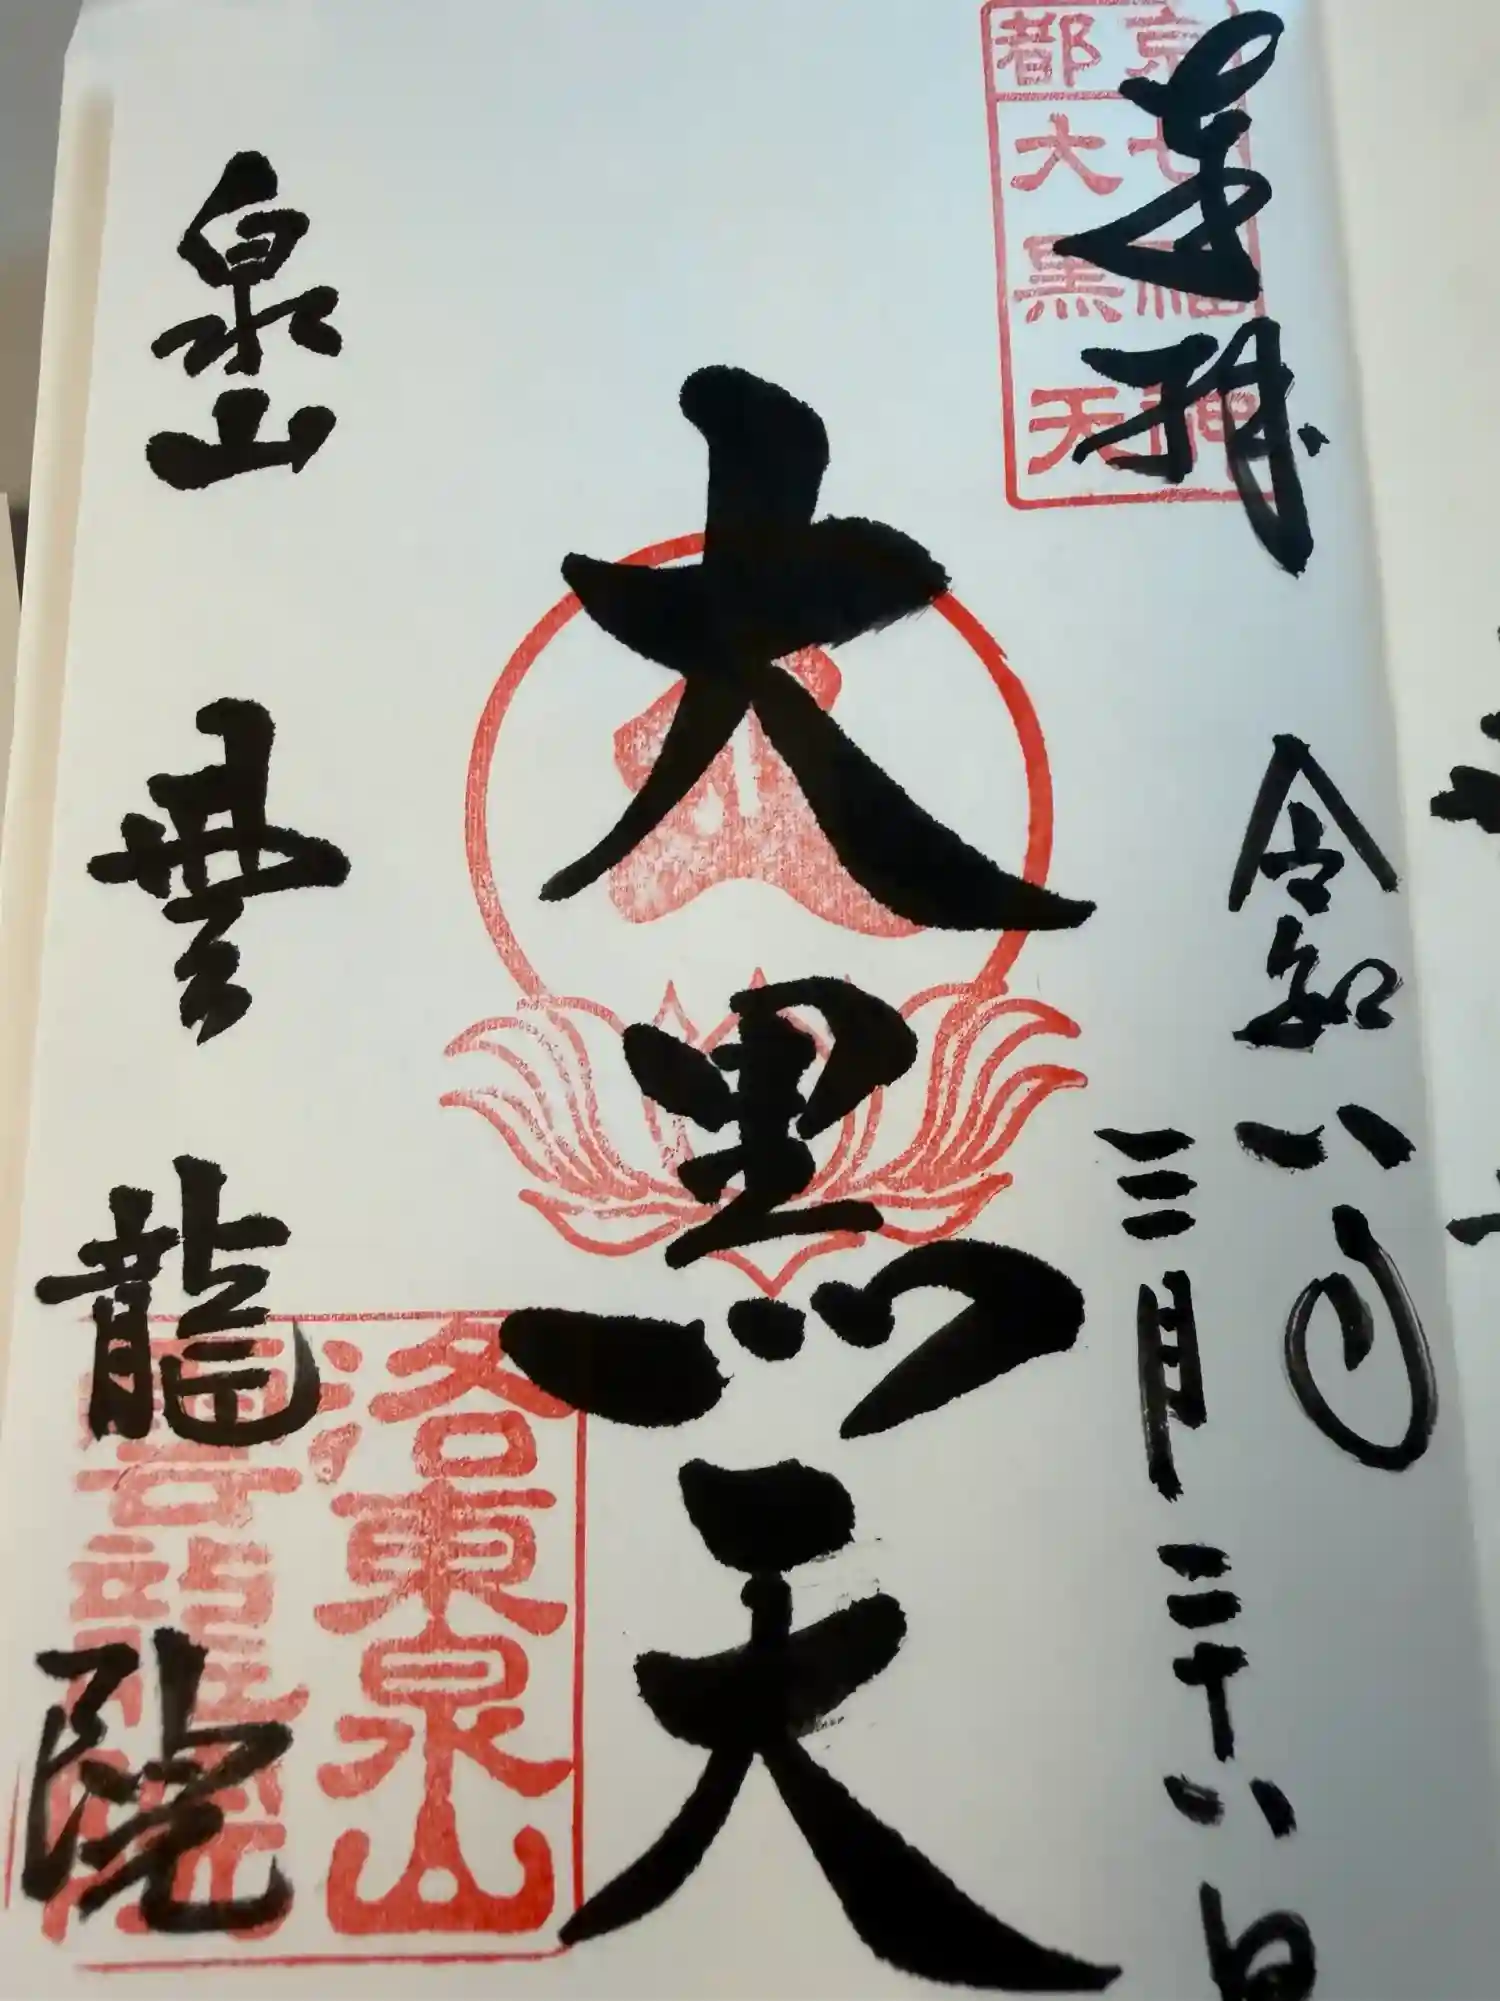 奉拝
令和八年
三月二十八日
大黒天
泉山
雲龍院
京七福神
都大黒天
洛東泉山
雲龍院